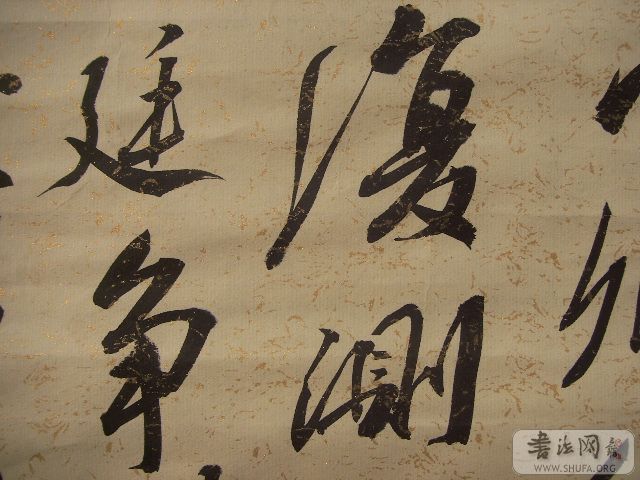 復測
廷争
書法网
WWW.SHUFA.ORG